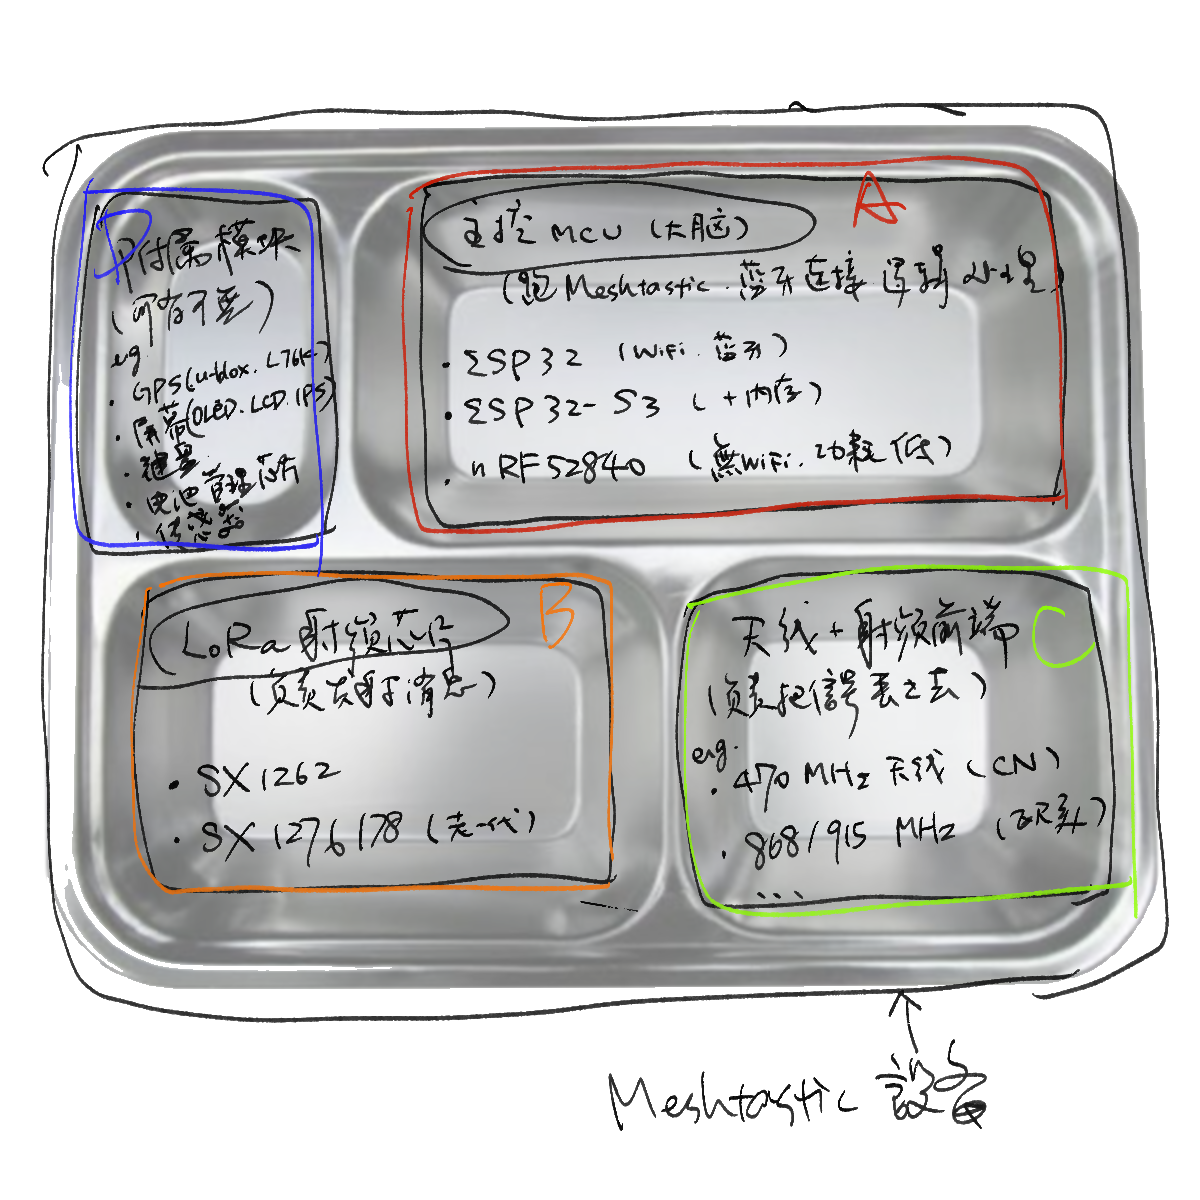 D
附属模块
(可有不要)
eg.
· GPS(u-blox. L76K)
· 屏幕(OLED. LCD. IPS)
· 键盘
· 电池管理芯片
· 传感器
A
主控 MCU (大脑)
(跑 Meshtastic. 蓝牙连接. 逻辑处理)
· ESP32 (WiFi. 蓝牙)
· ESP32-S3 (+内存)
· nRF52840 (無WiFi. 功耗低)
B
LoRa 射频芯片
(负责发射消息)
· SX1262
· SX1276/78 (老一代)
C
天线+射频前端
(负责把信號丢出去)
eg.
· 470 MHz 天线 (CN)
· 868/915 MHz (欧美)
...
Meshtastic 設备